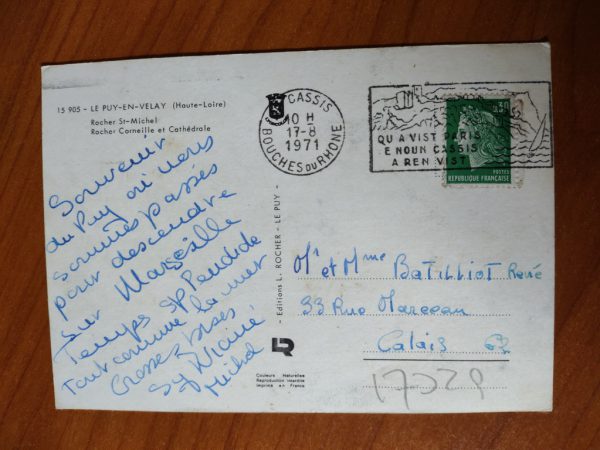 15 905 - LE PUY-EN-VELAY (Haute-Loire)
Rocher St-Michel
Rocher Corneille et Cathédrale
Souvenir
du Puy où nous
sommes passés
pour descendre
sur Marseille
Temps splendide
tout comme la mer
Grosses bises
Sylviane
Michel
- Editions L. ROCHER - LE PUY -
LR
Couleurs Naturelles
Reproduction interdite
Imprimé en France
CASSIS
10 H
17-8
1971
BOUCHES DU RHÔNE
QU A VIST PARIS
E NOUN CASSIS
A REN VIST
0,30
POSTES
REPUBLIQUE FRANÇAISE
Mr et Mme BATILLIOT René
33 Rue Marceau
Calais 62